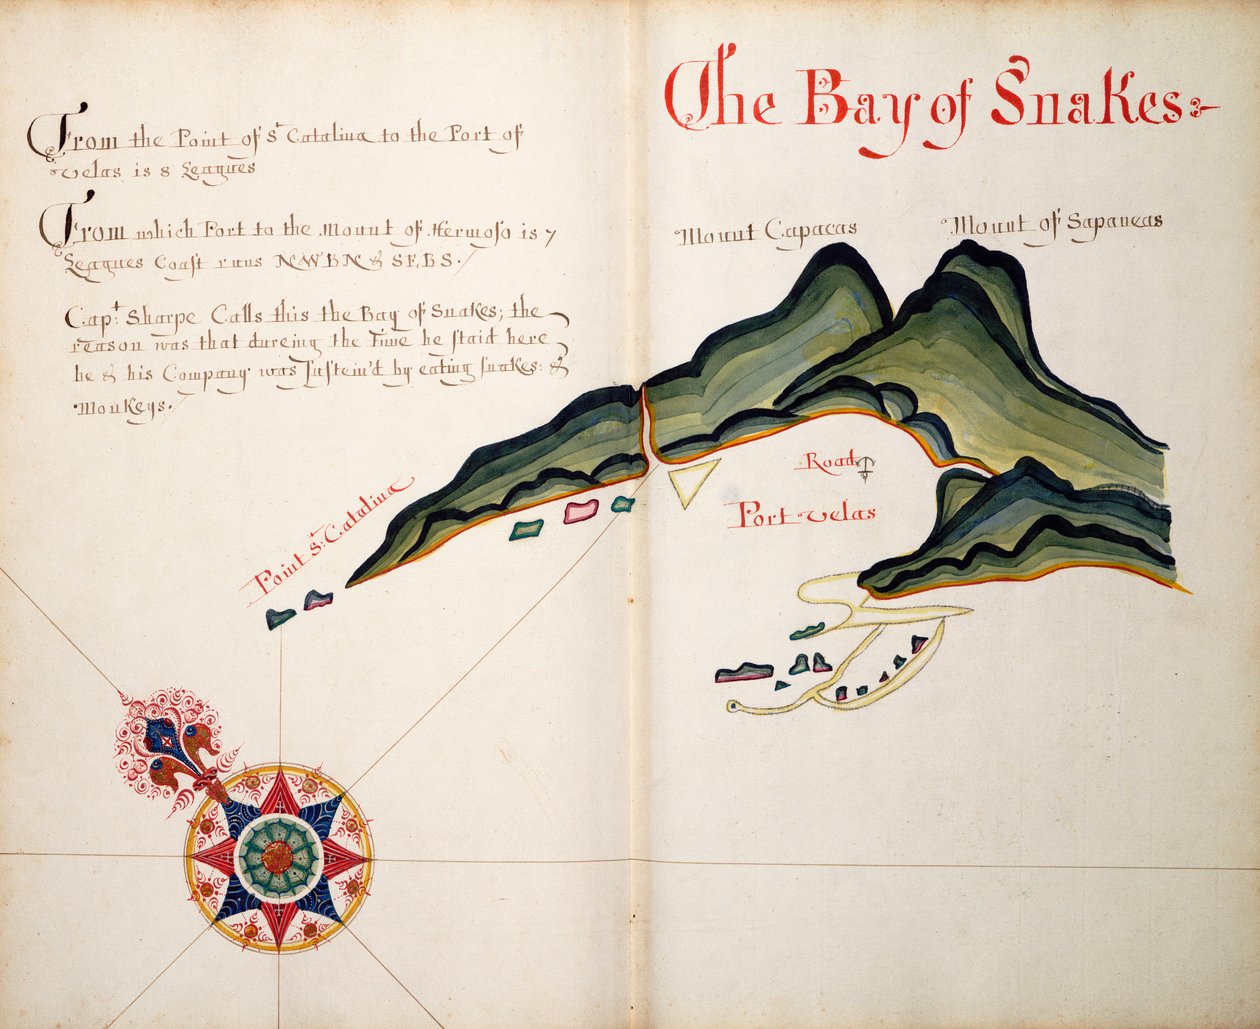 The Bay of Snakes:~
From the Point of St Catalina to the Port of
velas is 8 Leagues
From which Port to the Mount of Hermoso is 7
Leagues Coast runs NWBN & SEBS.
Capt: Sharpe Calls this the Bay of Snakes; the
reason was that dureing the time he staid here
he & his Company was sustein'd by eating snakes: &
Monkeys.
Mount Capacas
Mount of Sapaneas
Point St: Catalina
Road
Port velas